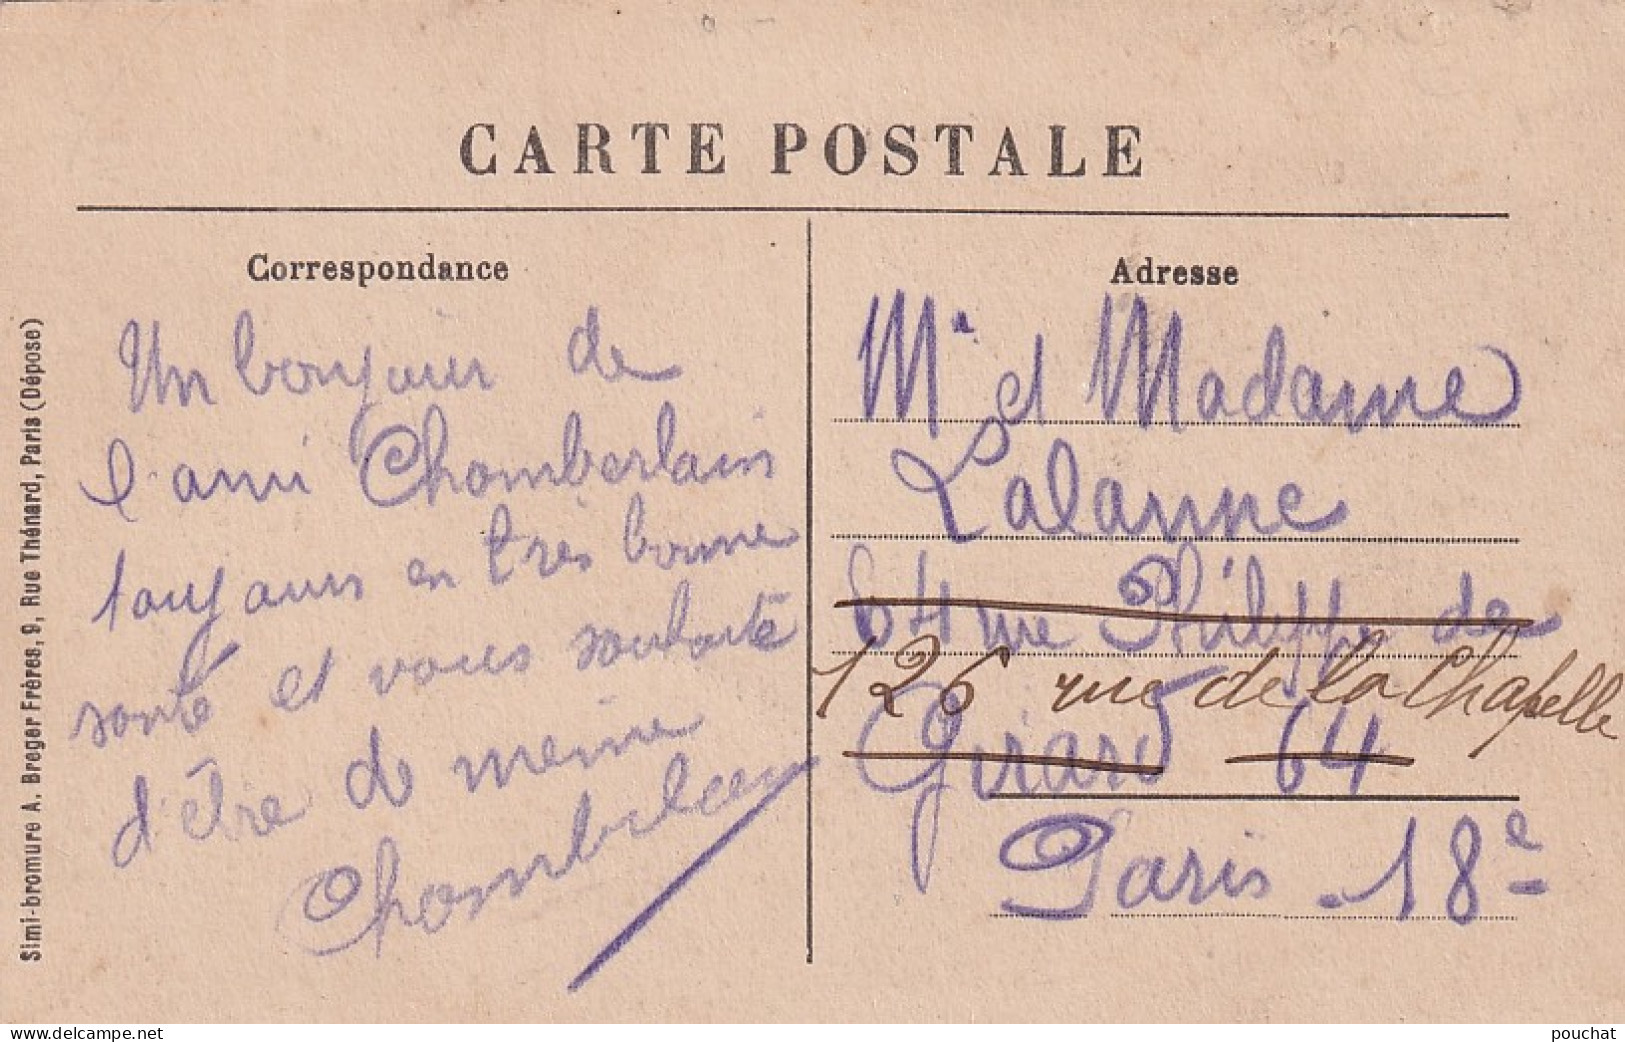 CARTE POSTALE
Correspondance
Un bonjour de
l'ami Chamberlain
toujours en très bonne
santé et vous souhaite
d'être de même
Chamberlain
Adresse
Mr et Madame
Lalanne
64 rue Philippe de
126 rue de la Chapelle
Girard 64
Paris - 18e
Simi-bromure A. Breger Frères, 9, Rue Thénard, Paris (Dépose)
www.delcampe.net
pouchat